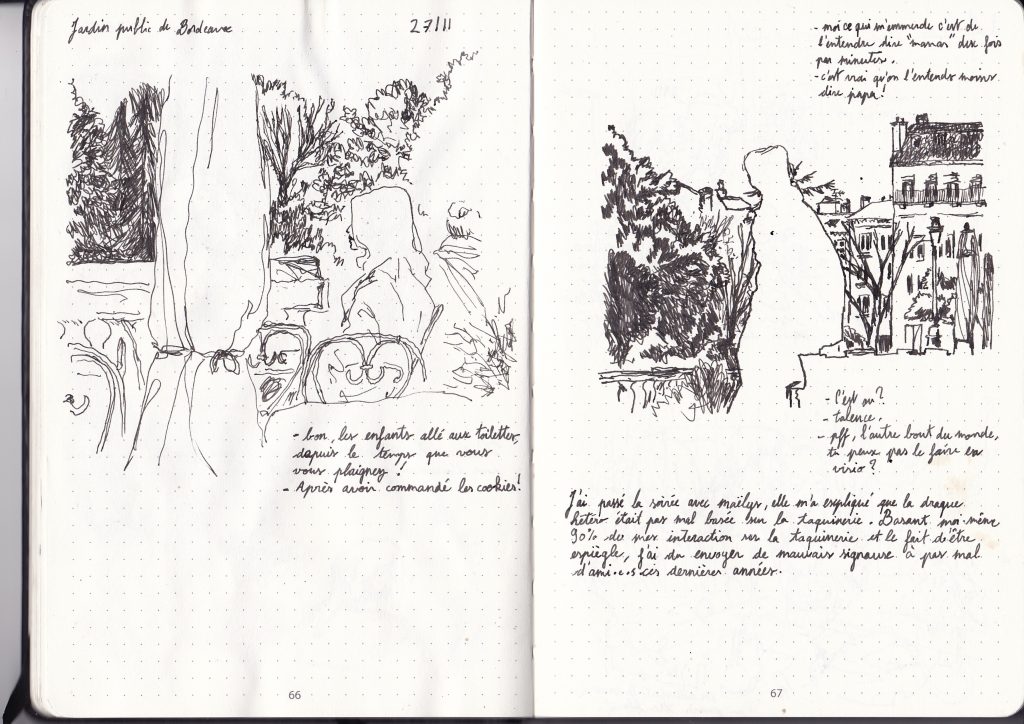 Jardin public de Bordeaux
27/11
- bon, les enfants allé aux toilettes,
depuis le temps que vous
vous plaignez !
- Après avoir commandé les cookies!
66
- moi ce qui m'emmerde c'est de
l'entendre dire "maman" dix fois
par minutes.
- c'est vrai qu'on l'entends moins
dire papa!
- C'est où?
- talence.
- pff, l'autre bout du monde,
tu peux pas le faire en
visio ?
J'ai passé la soirée avec maëlys, elle m'a expliqué que la drague
hétéro était pas mal basée sur la taquinerie. Basant moi-même
90% de mes interaction sur la taquinerie et le fait d'être
espiègle, j'ai du envoyer de mauvais signaux à pas mal
d'ami.e.s ces dernières années.
67